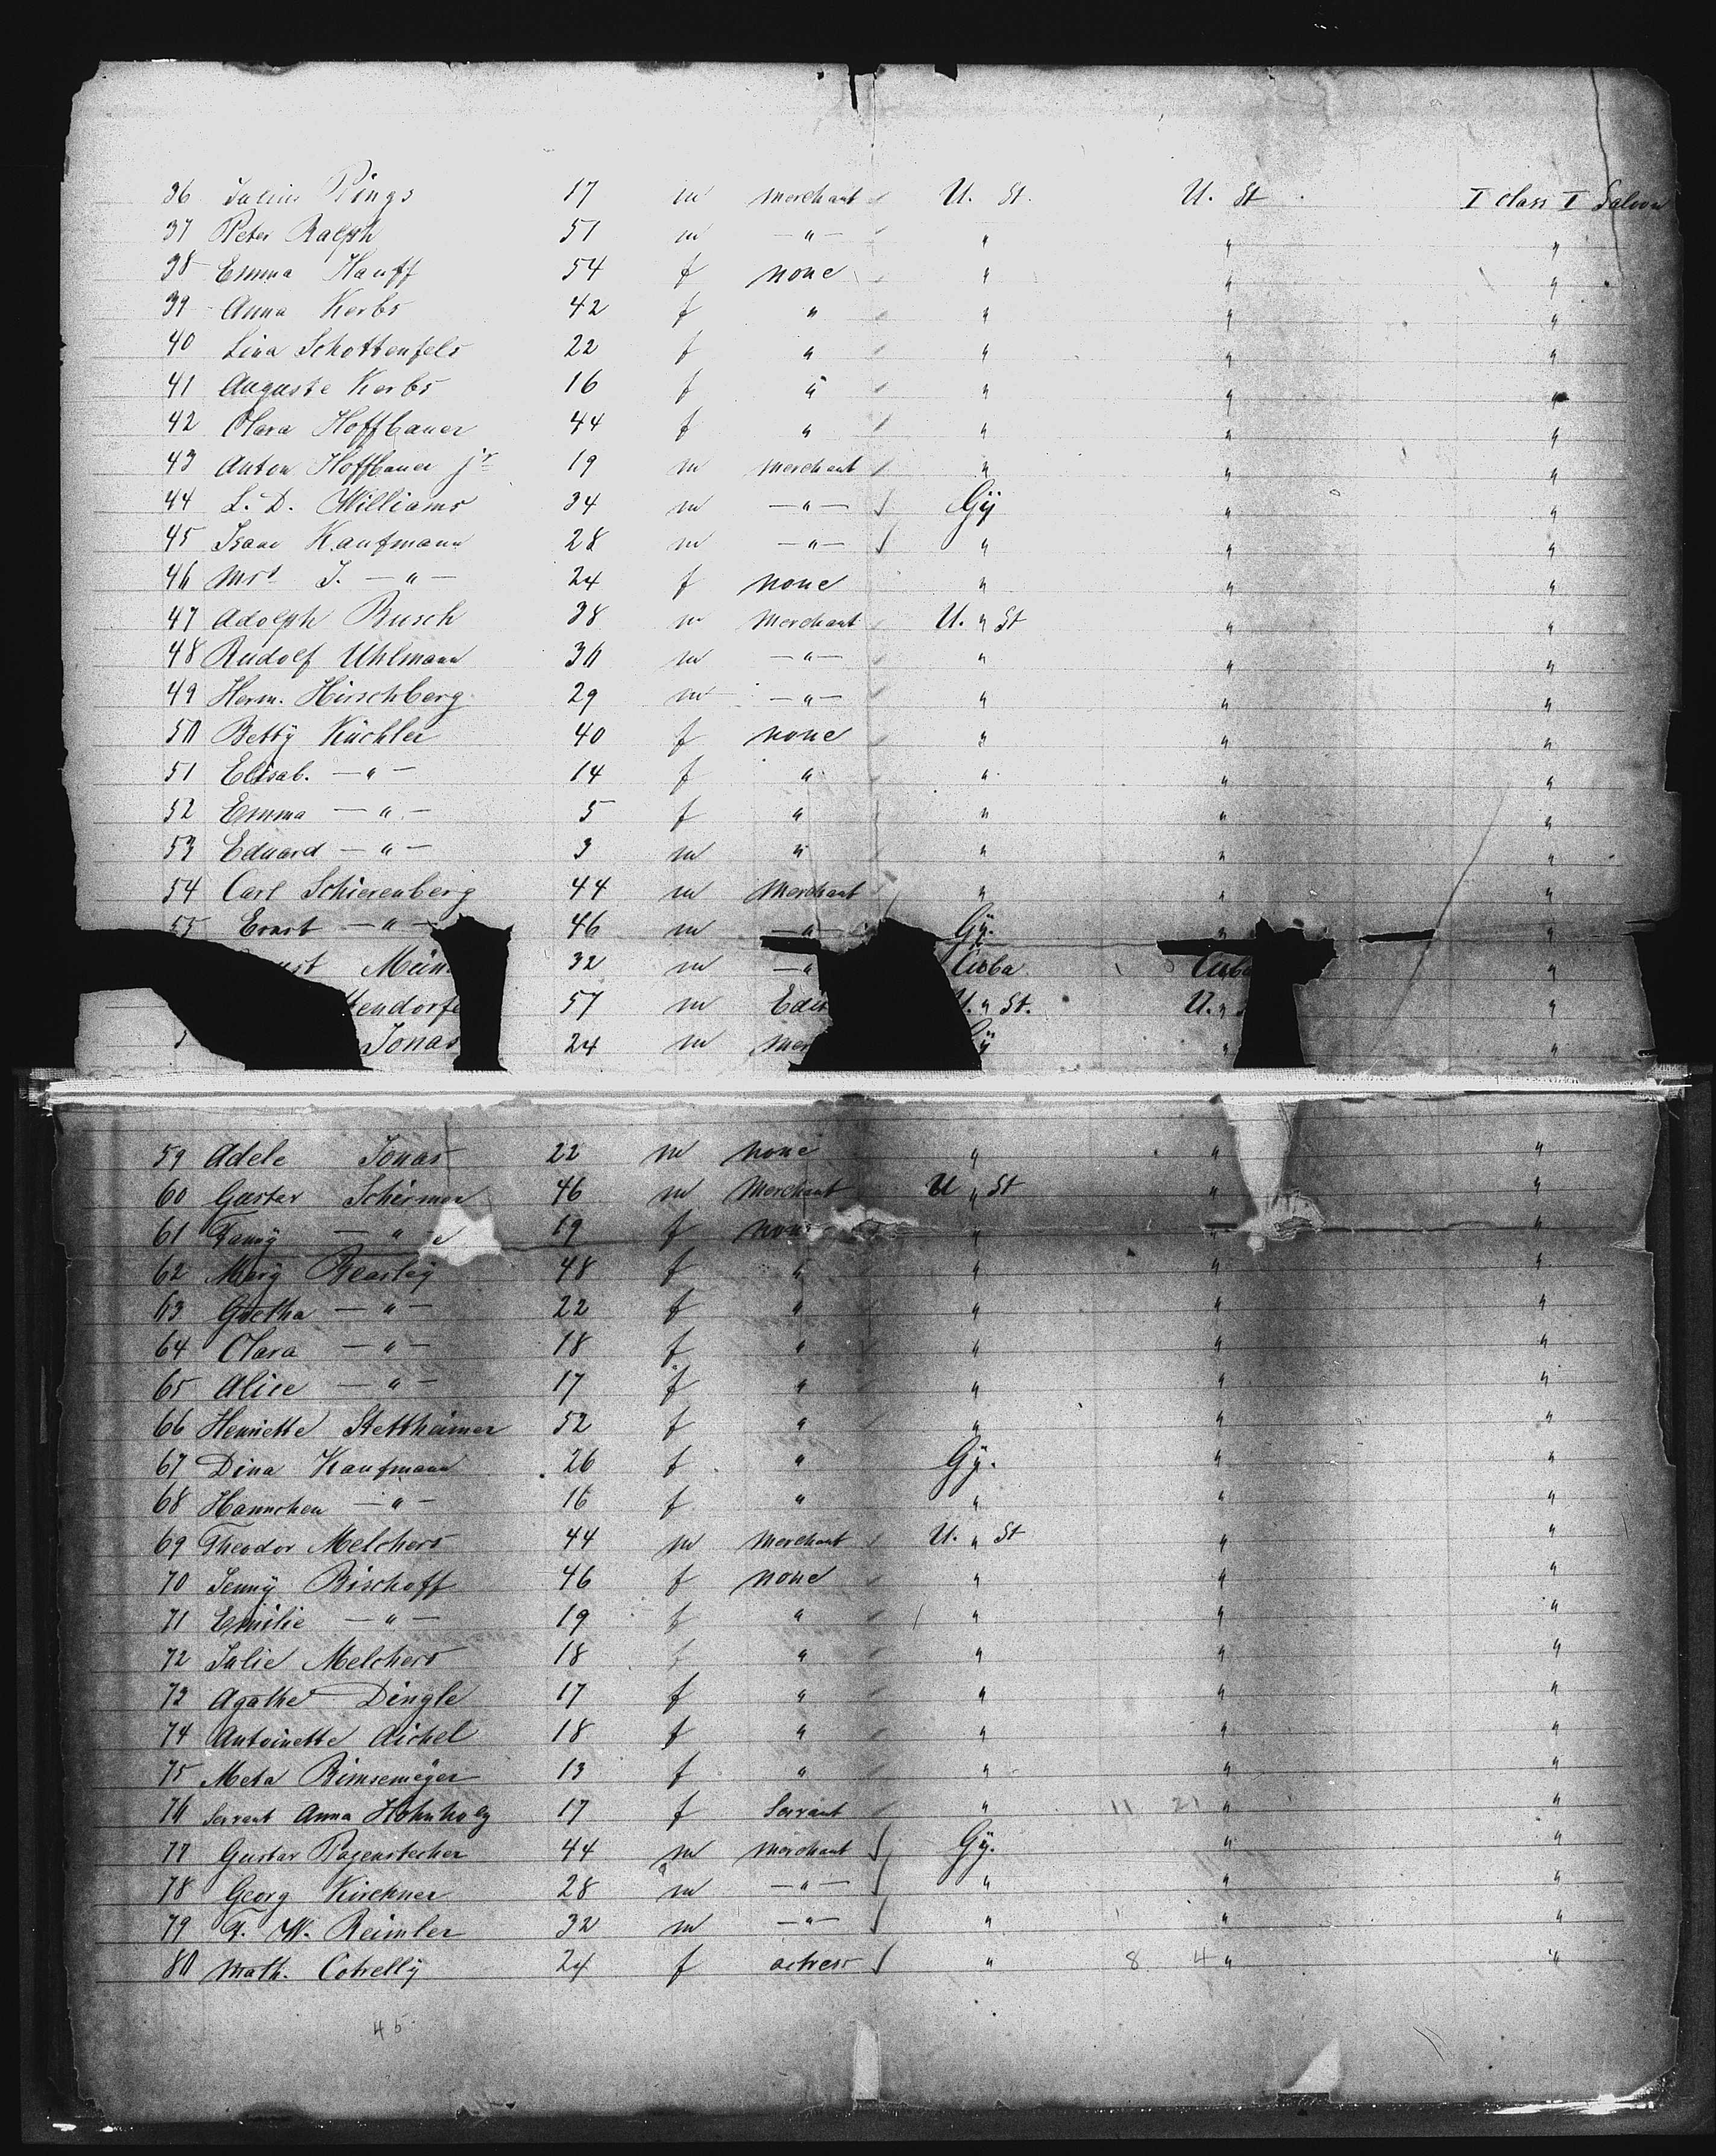 36 Julius Rings 17 m merchant U. St. U. St I class I Saloon
37 Peter Ralph 51 m — " — " " "
38 Emma Hauff 54 f none " " "
39 Anna Kerbs 42 f " " " "
40 Lina Schottenfels 22 f " " " "
41 Auguste Kerbs 16 f " " " "
42 Clara Hoffbauer 44 f " " " "
43 Anton Hoffbauer jr 19 m merchant " " "
44 L. D. Williams 34 m — " — Gÿ " "
45 Isaac Kaufmann 28 m — " — " " "
46 Mrs I. — " — 24 f none " " "
47 Adolph Busch 38 m Merchant U. " St " "
48 Rudolf Uhlmann 30 m — " — " " "
49 Herm. Hirschberg 29 m — " — " " "
50 Bettÿ Küchler 40 f none " " "
51 Elisab. — " — 14 f " " " "
52 Emma — " — 5 f " " " "
53 Eduard — " — 3 m " " " "
54 Carl Schierenberg 44 m Merchant " " "
55 Ernst — " — 46 m — " — Gÿ. " "
ust Mün 32 m — " Cuba Cuba "
tendorfe 57 m Edit U. " St. U. " "
5 Jonas 24 m mer Gÿ " "
59 Adele Jonas 22 m none " " "
60 Gustav Schirmer 46 m Merchant U " St " "
61 Fanÿ — " 19 f none " " "
62 Marÿ Bearleÿ 48 f " " " "
63 Gretha — " — 22 f " " " "
64 Clara — " — 18 f " " " "
65 Alice — " — 17 f " " " "
66 Henriette Stettheimer 52 f " " " "
67 Dina Kaufmann 26 f " Gÿ. " "
68 Hannchen — " — 16 f " " " "
69 Theodor Melchers 44 m Merchant U. " St " "
70 Jennÿ Bischoff 46 f none " " "
71 Emilie — " — 19 f " " " "
72 Julie Melchers 18 f " " " "
72 Agathe Dingle 17 f " " " "
74 Antoinette Aichel 18 f " " " "
75 Meta Rimsemeÿer 13 f " " " "
76 Servant Anna Hohnholz 17 f Servant " 11 21 " "
77 Gustav Pagenstecher 44 m Merchant Gÿ. " "
78 Georg Kirchner 28 m — " — " " "
79 F. W. Reimler 32 m — " — " " "
80 Math. Cotrellÿ 24 f actress " 8 4 " "
45